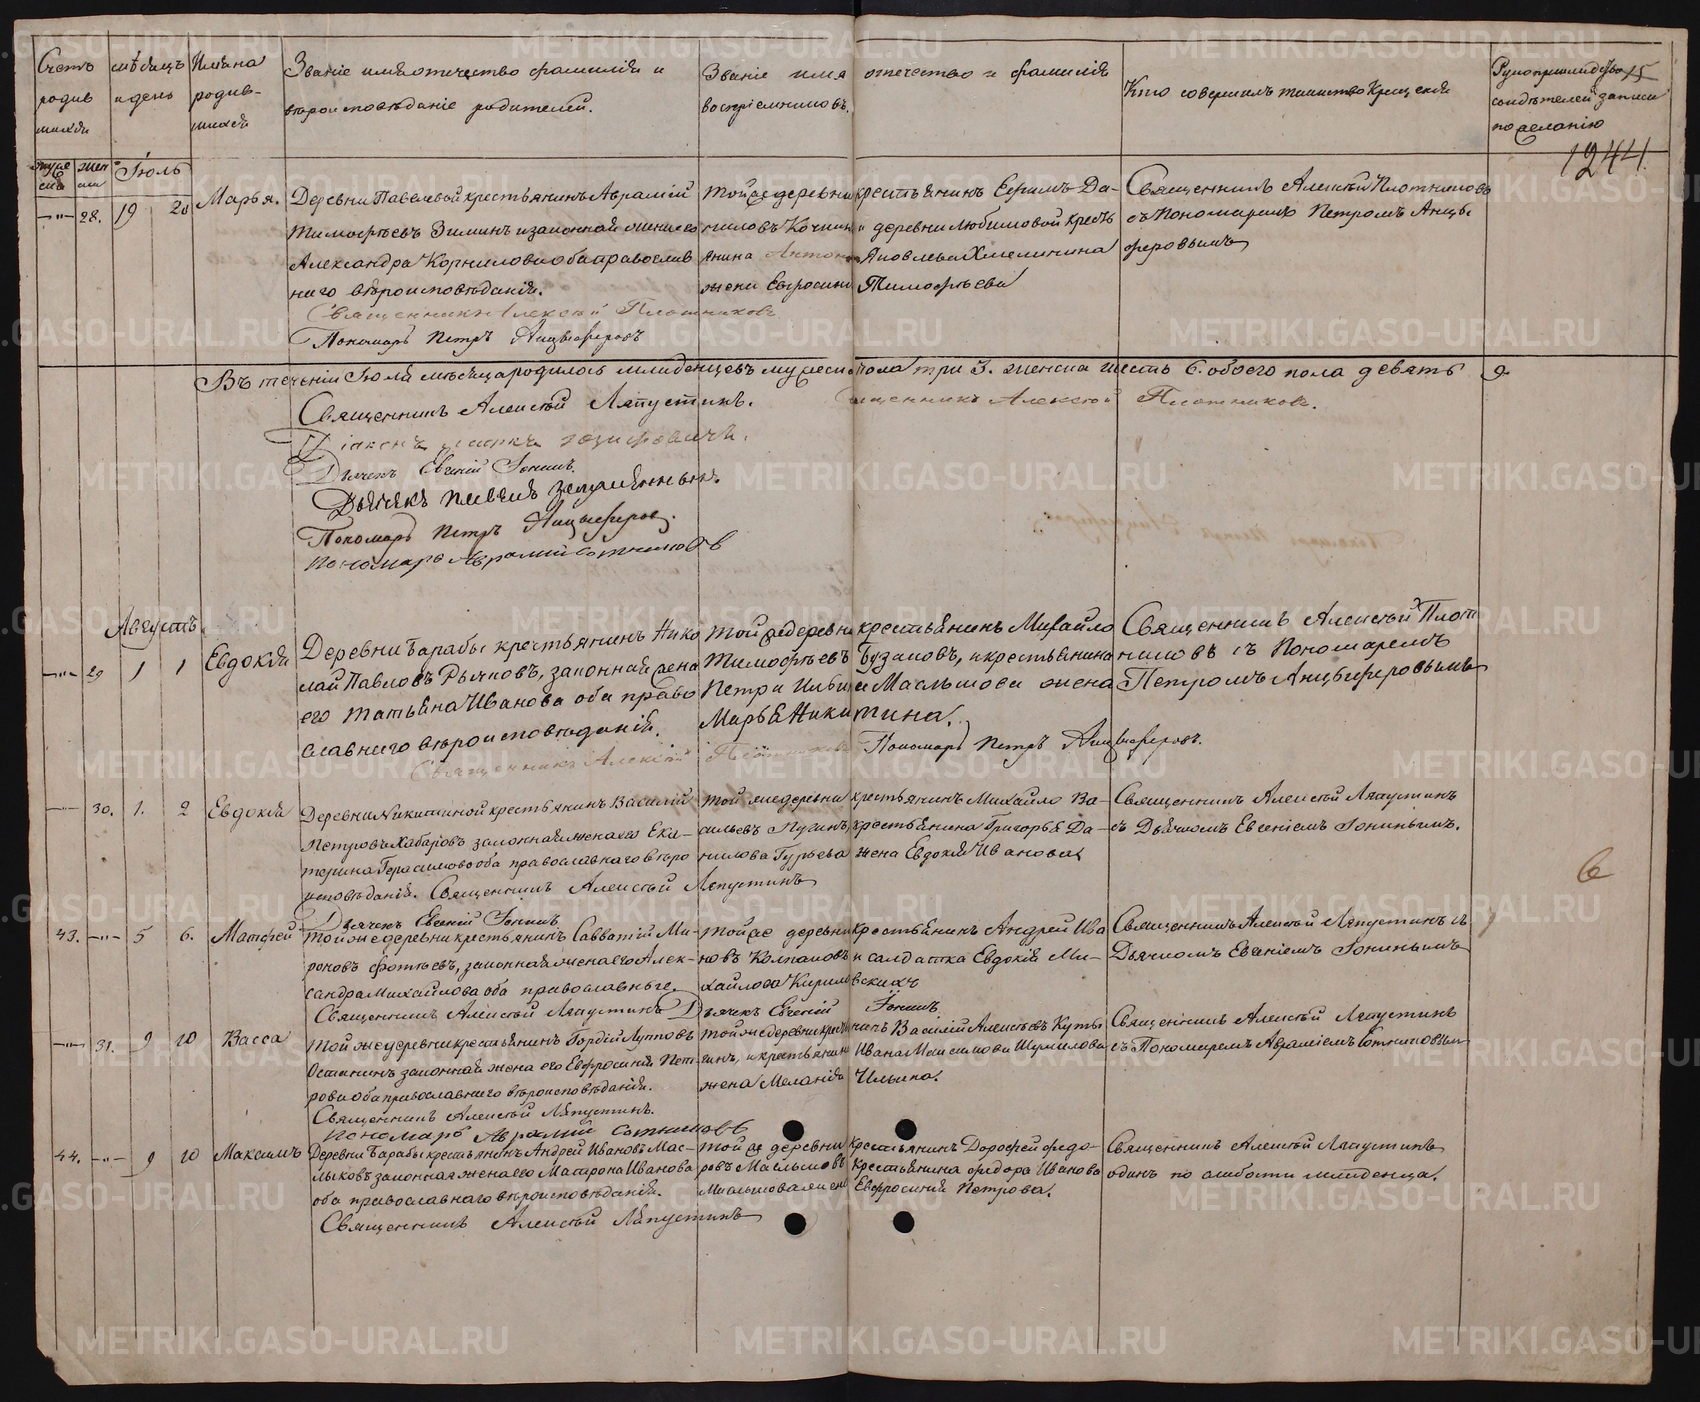 Счетъ родив шихся
мѣсяцъ и день
Имена родив- шихся
Званіе имя отчество фамилія и вѣроисповѣданіе родителей.
Званіе имя отчество и фамилія воспріемниковъ.
Кто совершалъ таинство Крещенія
Рукоприкладство свидѣтелей записи по желанію
15
1244.
муже ска
жен ска
Іюль
—„— 28. 19 20 Марья.
Деревни Павлевой крестьянинъ Аврамій
Тимофѣевъ Зиминъ и законная жена его
Александра Корнилова оба православ
наго вѣроисповѣданія.
Священникъ Алексѣй Плотниковъ
Пономарь Петръ Анцыферовъ
Той же деревни крестьянинъ Ефимъ Да-
ниловъ Кочнин и деревни Любимовой Кресть
янина Антона Яковлева Хмелинина
жена Евфросинья Тимофѣева
Священникъ Алексѣй Плотниковъ
съ Пономаремъ Петромъ Анцы
феровымъ
Въ теченіи Іюля мѣсяца родилось младенцевъ мужеска пола три 3. женска шесть 6. обоего пола девять 9.
Священникъ Алексѣй Ляпустинъ.
Священникъ Алексѣй Плотниковъ.
Діаконъ
Дьячекъ Евгеній Іонинъ.
Дьячекъ Павелъ
Пономарь Петръ Анцыферовъ.
Пономарь Аврамій Сотниковъ
Августъ.
—„— 29 1 1 Евдокія
Деревни Барабы крестьянинъ Нико
лай Павловъ Рычковъ, законная жена
его Татьяна Иванова оба право
славнаго вѣроисповѣданія.
Священникъ Алексѣй Плотниковъ
Пономарь Петръ Анцыферовъ.
Той же деревни крестьянинъ Михайло
Тимофѣевъ Бузановъ, и крестьянина
Петра Ильи Маслыкова жена
Марья Никитина.
Священникъ Алексѣй Плот
никовъ съ Пономаремъ
Петромъ Анцыферовымъ
—„— 30. 1. 2 Евдокія
Деревни Никитиной крестьянинъ Василій
Петровъ Хабаровъ законная жена его Ека-
терина Герасимова оба православнаго вѣро
исповѣданія. Священникъ Алексѣй Ляпустинъ
Дьячекъ Евгеній Іонинъ
Той же деревни крестьянинъ Михайло Ва-
сильевъ Пугинъ, крестьянина Григорья Да-
нилова Гурьева жена Евдокія Иванова
Священникъ Алексѣй Ляпустинъ
съ Дьячкомъ Евгеніемъ Іонинымъ.
6
43. —„— 5 6. Матфей
Той же деревни крестьянинъ Савватій Ми-
роновъ Фотѣевъ, законная жена его Алек-
сандра Михайлова оба православные.
Священникъ Алексѣй Ляпустинъ Дьячекъ Евгеній Іонинъ
Той же деревни крестьянинъ Андрей Ива
новъ Колпаковъ и салдатка Евдокія Ми-
хайлова Кириловскихъ
Священникъ Алексѣй Ляпустинъ съ
Дьячкомъ Евгеніемъ Іонинымъ
—„— 31. 9 10 Васса
Той же деревни крестьянинъ Гордій Луповъ
Останинъ законная жена его Евфросинія Пет-
рова оба православнаго вѣроисповѣданія.
Священникъ Алексѣй Ляпустинъ.
Пономарь Аврамій Сотниковъ
Той же деревни крестьянинъ Василій Алексѣевъ Куты
гинъ, и крестьянина Ивана Максимова Шумилова
жена Меланія Ильина.
Священникъ Алексѣй Ляпустинъ
съ Пономаремъ Авраміемъ Сотниковым
44. —„— 9 10 Максимъ
Деревни Барабы крестьянинъ Андрей Ивановъ Мас-
лыковъ законная жена его Матрона Иванова
оба православнаго вѣроисповѣданія.
Священникъ Алексѣй Ляпустинъ
Той же деревни крестьянинъ Дорофей Федо-
ровъ Маслыковъ крестьянина Федора Иванова
Маслыкова жена Евфросинія Петрова.
Священникъ Алексѣй Ляпустинъ
одинъ по слабости младенца.
METRIKI.GASO-URAL.RU